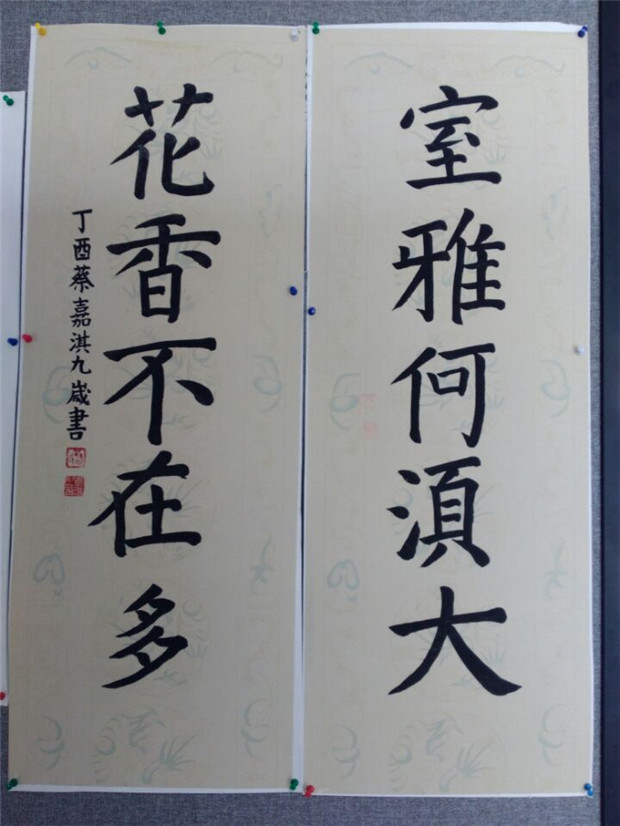 室雅何湏大
花香不在多
丁酉蔡嘉淇九歲書